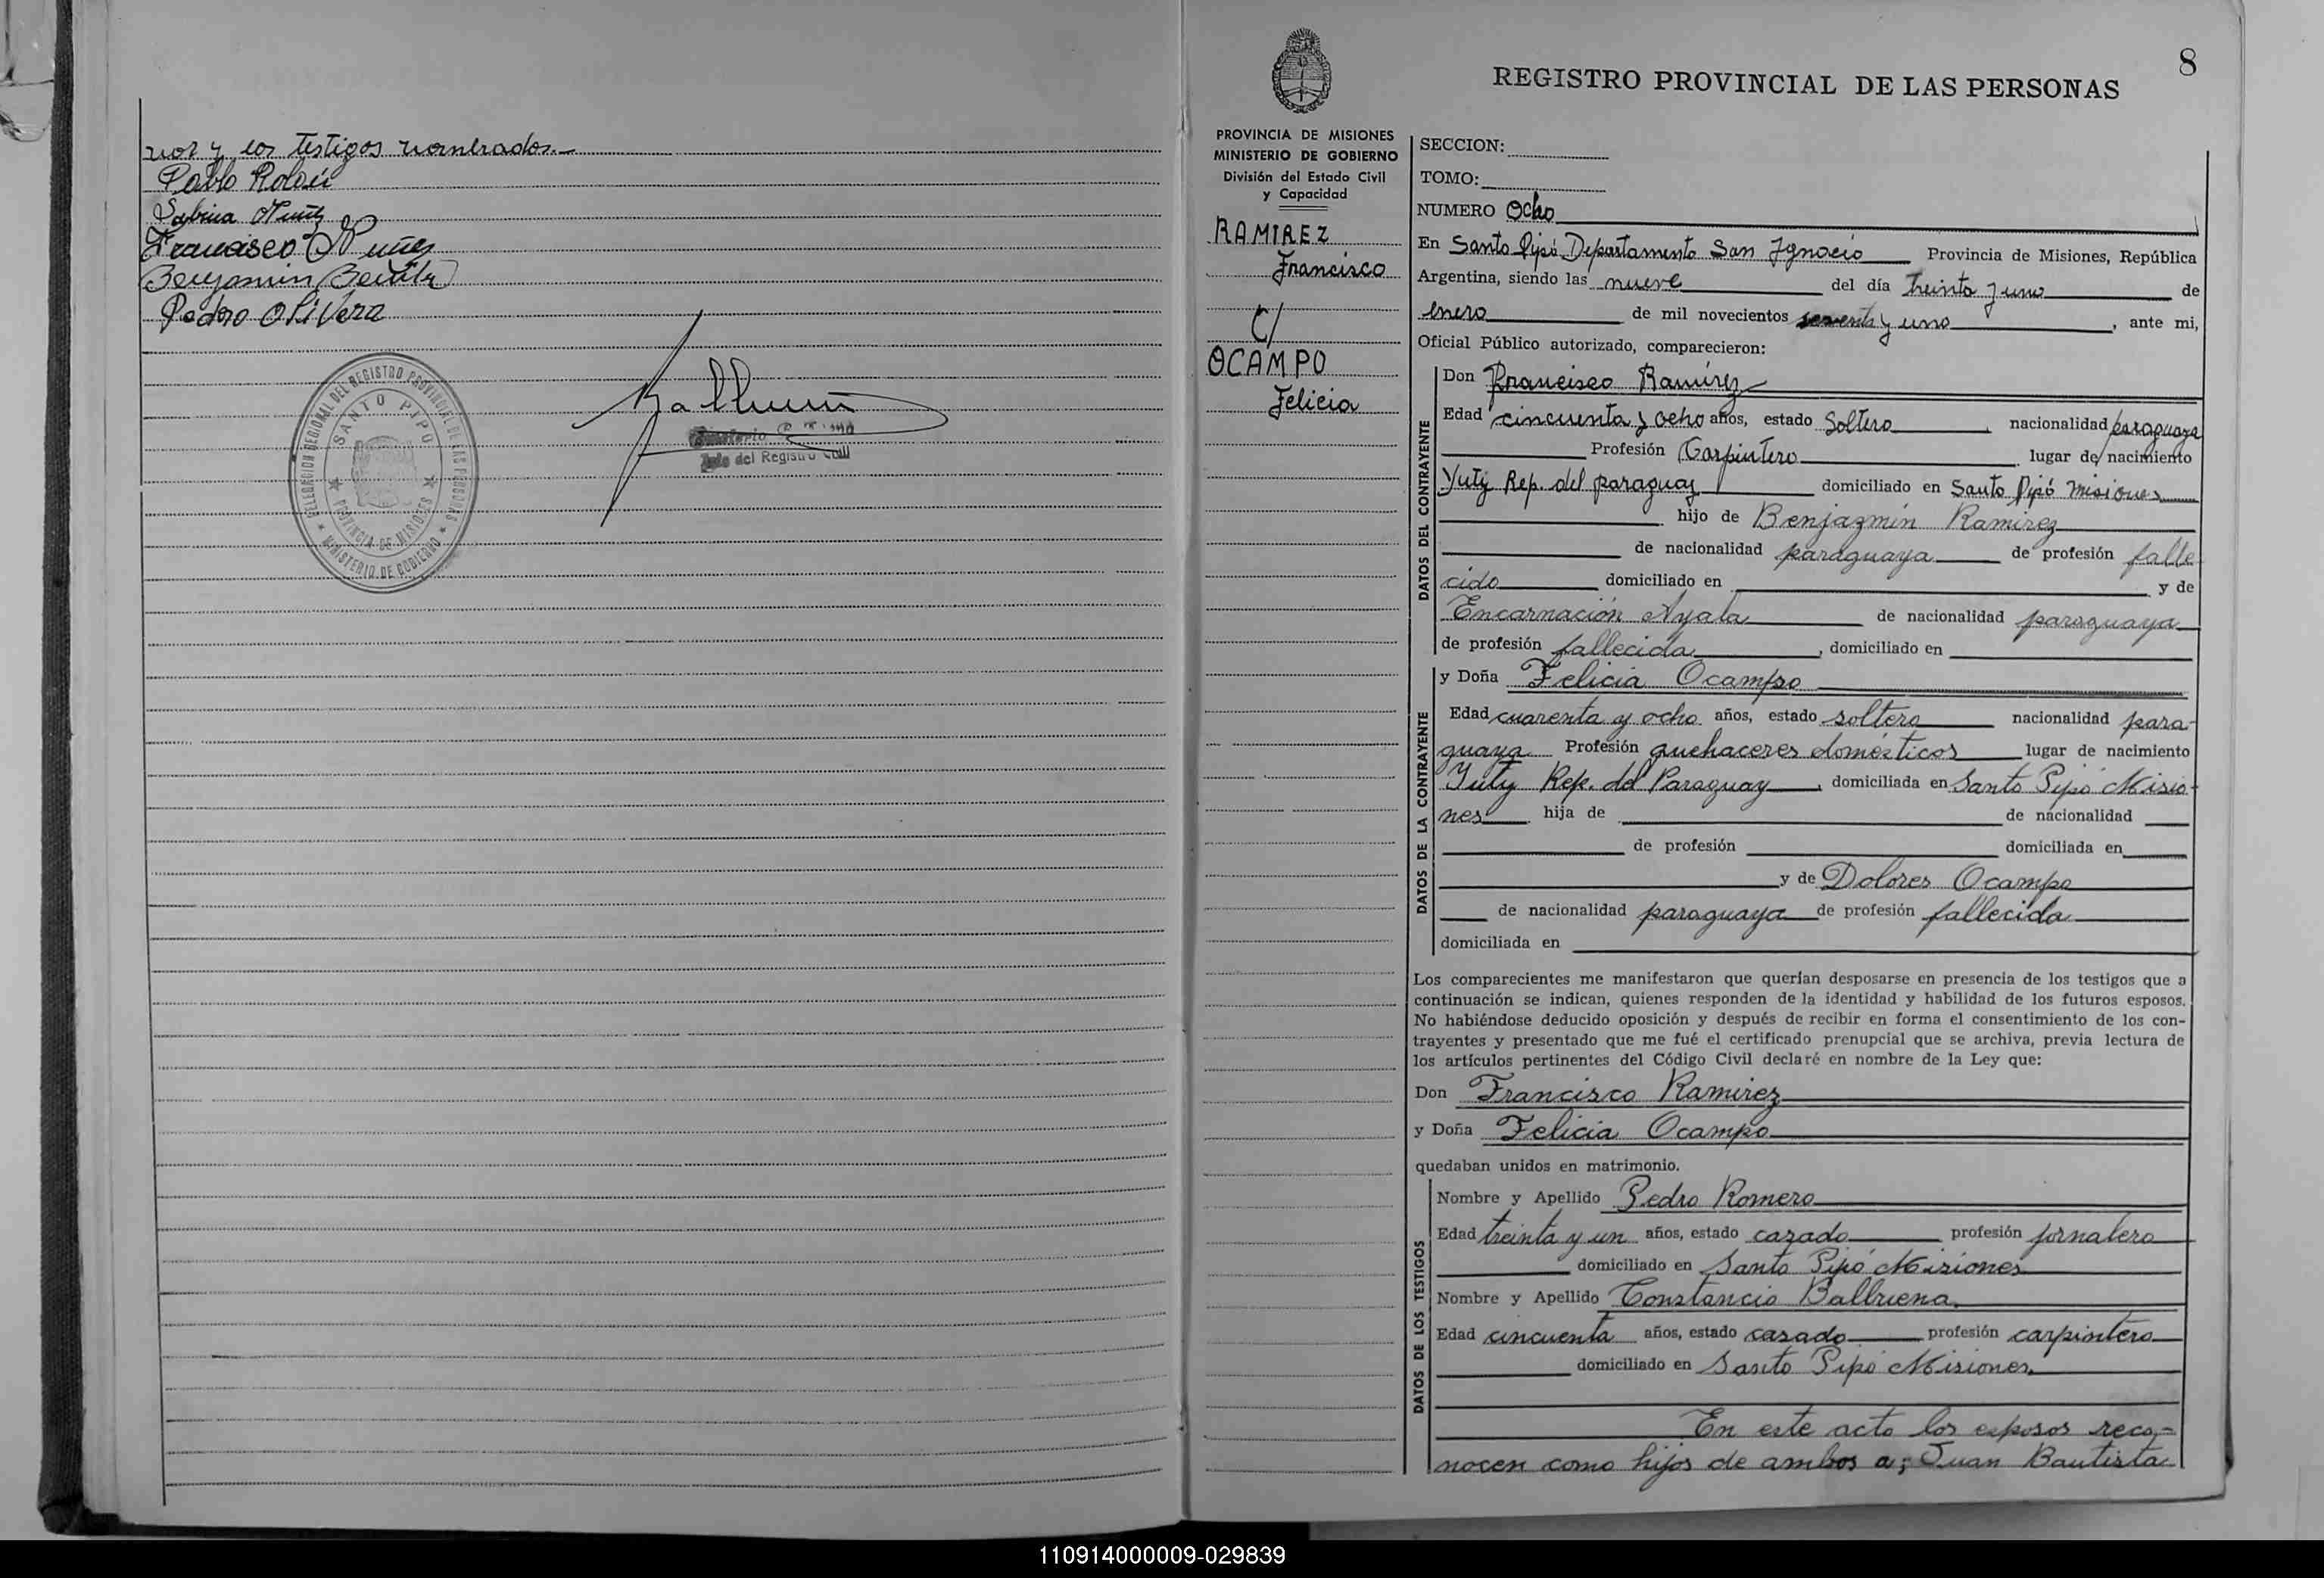 nor y los testigos nombrados.—
Pablo Rolón
Sabina Nuñez
Francisco Nuñez
Benjamin Benitez
Pedro OLIVera
DELEGACION REGIONAL DEL REGISTRO PROVINCIAL DE LAS PERSONAS
SANTO PIPO
PROVINCIA DE MISIONES
MINISTERIO DE GOBIERNO
Jefe del Registro Civil
8
REGISTRO PROVINCIAL DE LAS PERSONAS
PROVINCIA DE MISIONES
MINISTERIO DE GOBIERNO
División del Estado Civil
y Capacidad
RAMIREZ
Francisco
C/
OCAMPO
Felicia
SECCION:
TOMO:
NUMERO Ocho
En Santo Pipó Departamento San Ignacio Provincia de Misiones, República
Argentina, siendo las nueve del día treinta y uno de
enero de mil novecientos setenta y uno, ante mi,
Oficial Público autorizado, comparecieron:
DATOS DEL CONTRAYENTE
Don Francisco Ramírez
Edad cincuenta y ocho años, estado Soltero nacionalidad paraguaya
Profesión Carpintero lugar de nacimiento
Yuty Rep. del paraguay domiciliado en Santo Pipó Misiones
hijo de Benjazmín Ramirez
de nacionalidad paraguaya de profesión falle
cido domiciliado en y de
Encarnación Ayala de nacionalidad paraguaya
de profesión fallecida, domiciliado en
DATOS DE LA CONTRAYENTE
y Doña Felicia Ocampo
Edad cuarenta y ocho años, estado soltera nacionalidad para-
guaya Profesión quehaceres domésticos lugar de nacimiento
Yuty Rep. del Paraguay, domiciliada en Santo Pipó Misio-
nes hija de de nacionalidad
de profesión domiciliada en
y de Dolores Ocampo
de nacionalidad paraguaya de profesión fallecida
domiciliada en
Los comparecientes me manifestaron que querían desposarse en presencia de los testigos que a
continuación se indican, quienes responden de la identidad y habilidad de los futuros esposos.
No habiéndose deducido oposición y después de recibir en forma el consentimiento de los con-
trayentes y presentado que me fué el certificado prenupcial que se archiva, previa lectura de
los artículos pertinentes del Código Civil declaré en nombre de la Ley que:
Don Francisco Ramirez
y Doña Felicia Ocampo
quedaban unidos en matrimonio.
DATOS DE LOS TESTIGOS
Nombre y Apellido Pedro Romero
Edad treinta y un años, estado casado profesión jornalero
domiciliado en Santo Pipó Misiones
Nombre y Apellido Constancio Balbuena
Edad cincuenta años, estado casado profesión carpintero
domiciliado en Santo Pipó Misiones
En este acto los esposos reco-
nocen como hijos de ambos a; Juan Bautista
110914000009-029839